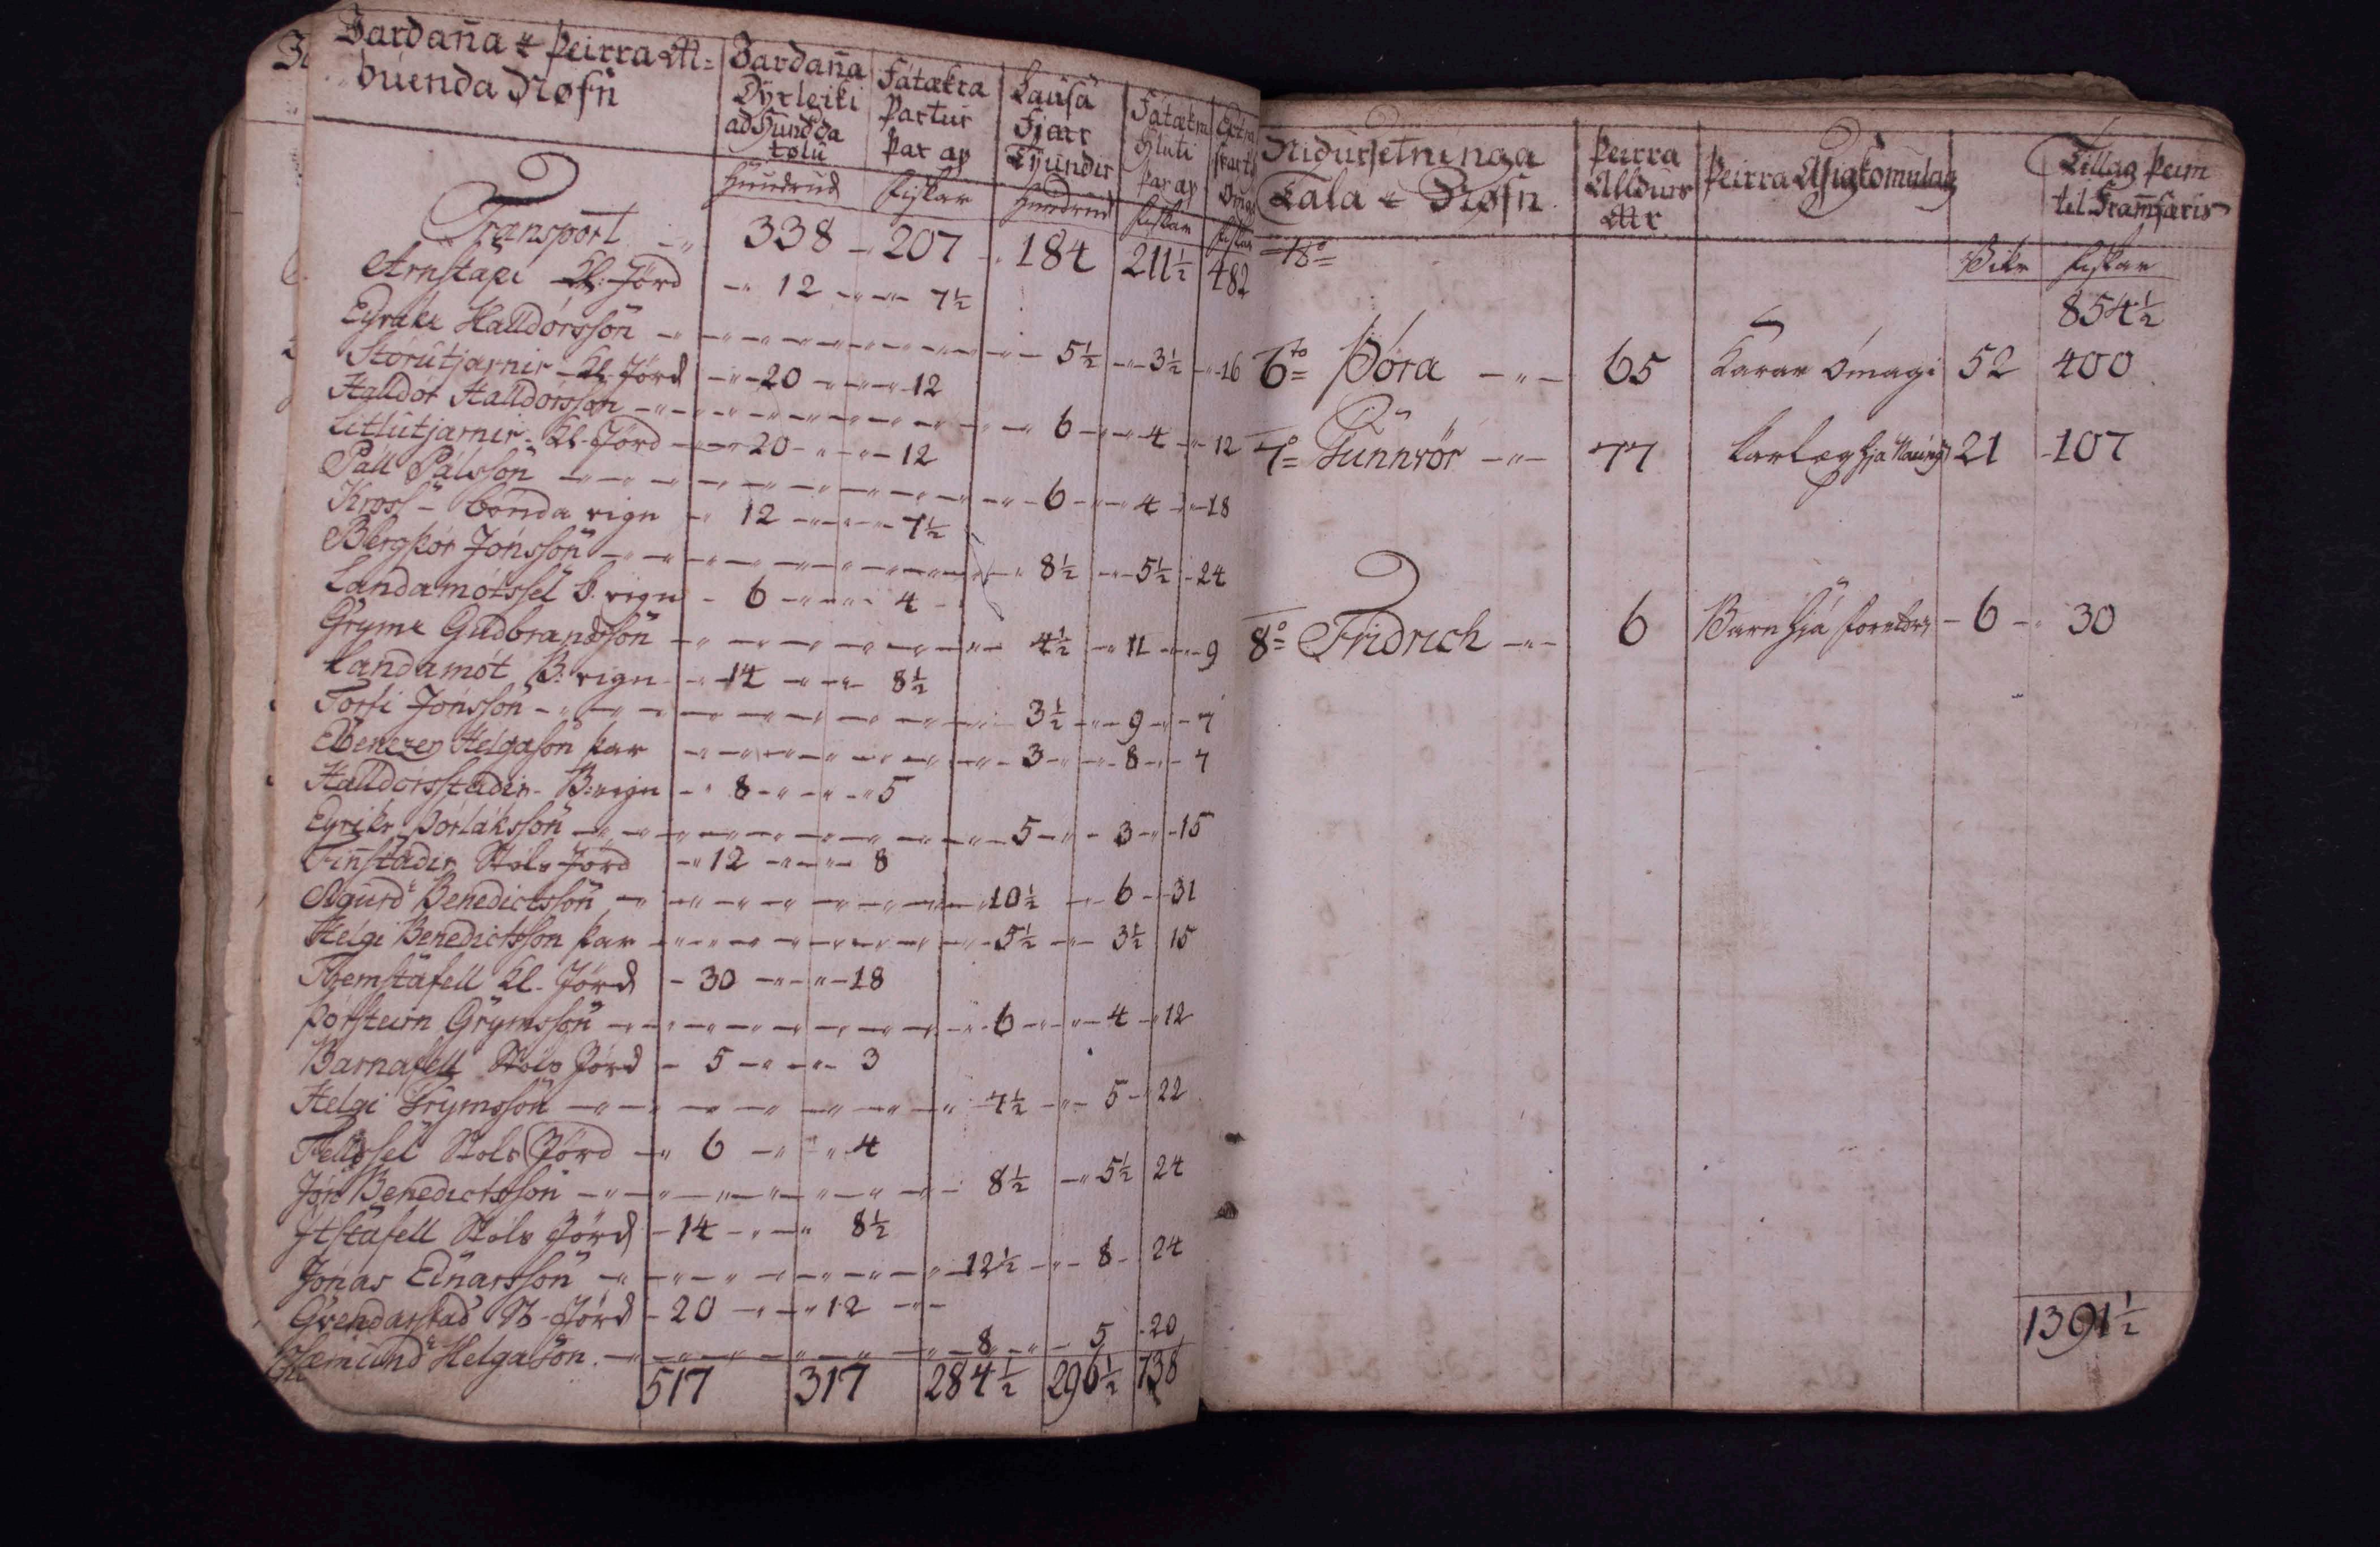 Jardaña & þeirra M=
búenda Nøfn
Jardaña
Dýrleiki
ad Hundda
tølu
Fátækra
Partur
þar ap
Lausa
Fjarr
Tÿunder
Fátækra
Hluti
þar ap
Hundrud
fiskar
Hundrud
fiskar
fiskar
Transport -„ 338 - 207 - 184 211½ 482
Arnstapi Kl: Jörd -„ 12 -„-„- 7½
Eyrikr Halldórsson -„- 5½ -„- 3½ -„-16
Stórutjarnir - Kl. Jörd -„-20 -„-„-12
Halldór Halldorsson -„- 6 -„-4 -„-12
Litlutjarnir - Kl. Jörd -„-20 -„-„- 12
Páll Pálsson -„- 6 -„- 4 -„-18
Kross - bonda eign -„ 12 -„-„- 7½
Bergþór Jónsson -„- 8½ -„- 5½ - 24
Landamótssel b. eign - 6 -„-„- 4 -
Grymr Gudbrandsson -„- 4½ -„ 11 -„- 9
Landamót B: eign -„-14 -„-„- 8½
Torfi Jónsson -„- 3½ -„- 9 -„- 7
Ebenezer Helgason þar -„- 3 -„- 8 -„- 7
Halldorsstadir - B: eign -„ 8 -„-„-„5
Eyrikr Þorláksson -„- 5 -„- 3 -„-15
Fiñstadir Stóls Jörd -„12 -„-„- 8
Sigurdr Benedictsson -„- 10½ -„- 6 -„31
Helgi Benedictsson þar -„- 5½ -„- 3½ 15
Fremstafell Kl. Jörd - 30 -„-„-18
Þorsteirn Grymsson -„- 6 -„-„- 4 -„12
Barnafell Stóls Jörd - 5 -„-„- 3
Helgi Grymsson -„- 7½ -„- 5 -„22
Fellssel Stols Jörd -„ 6 -„-„ 4
Jón Benedictsson -„- 8½ -„ 5½ 24
Ytstafell Stóls Jörd - 14 -„-„ 8½
Jónas Einarsson -„- 12½ -„- 8 - 24
Gvendarstad St. Jörd - 20 -„-„12 -„-
Sæmundr Helgason -„- 8 -„- 5 -20
517 317 284½ 296½ 738
Nidursetninga
Tala & Nøfn
þeirra
Alldurs
Ar
þeirra Asigkomulag
Tillag þeim
til Fram̄færis
Vikr fiskar
854½
6to Þóra -„- 65 Karar Ómagi 52 400
7o Gunnvör -„- 77 21 -107
8o Fridrich -„- 6 Barn hjá - 6 -„ 30
1391½